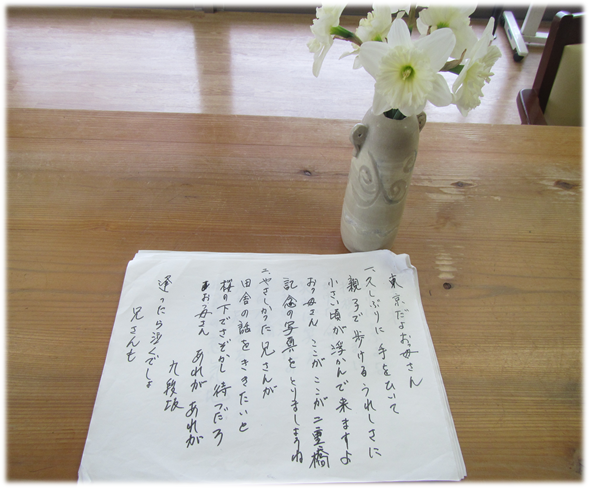 東京だよお母さん
一、久しぶりに 手をひいて
親子で歩ける うれしさに
小さい頃が 浮かんで来ますよ
おっ母さん ここが ここが 二重橋
記念の写真を としましょうね
二、やさしかった 兄さんが
田舎の話を ききたいと
桜の下で さぞかし 待つだろ
おっ母さん あれが あれが
九段坂
逢ったら泣くでしょ
兄さんも